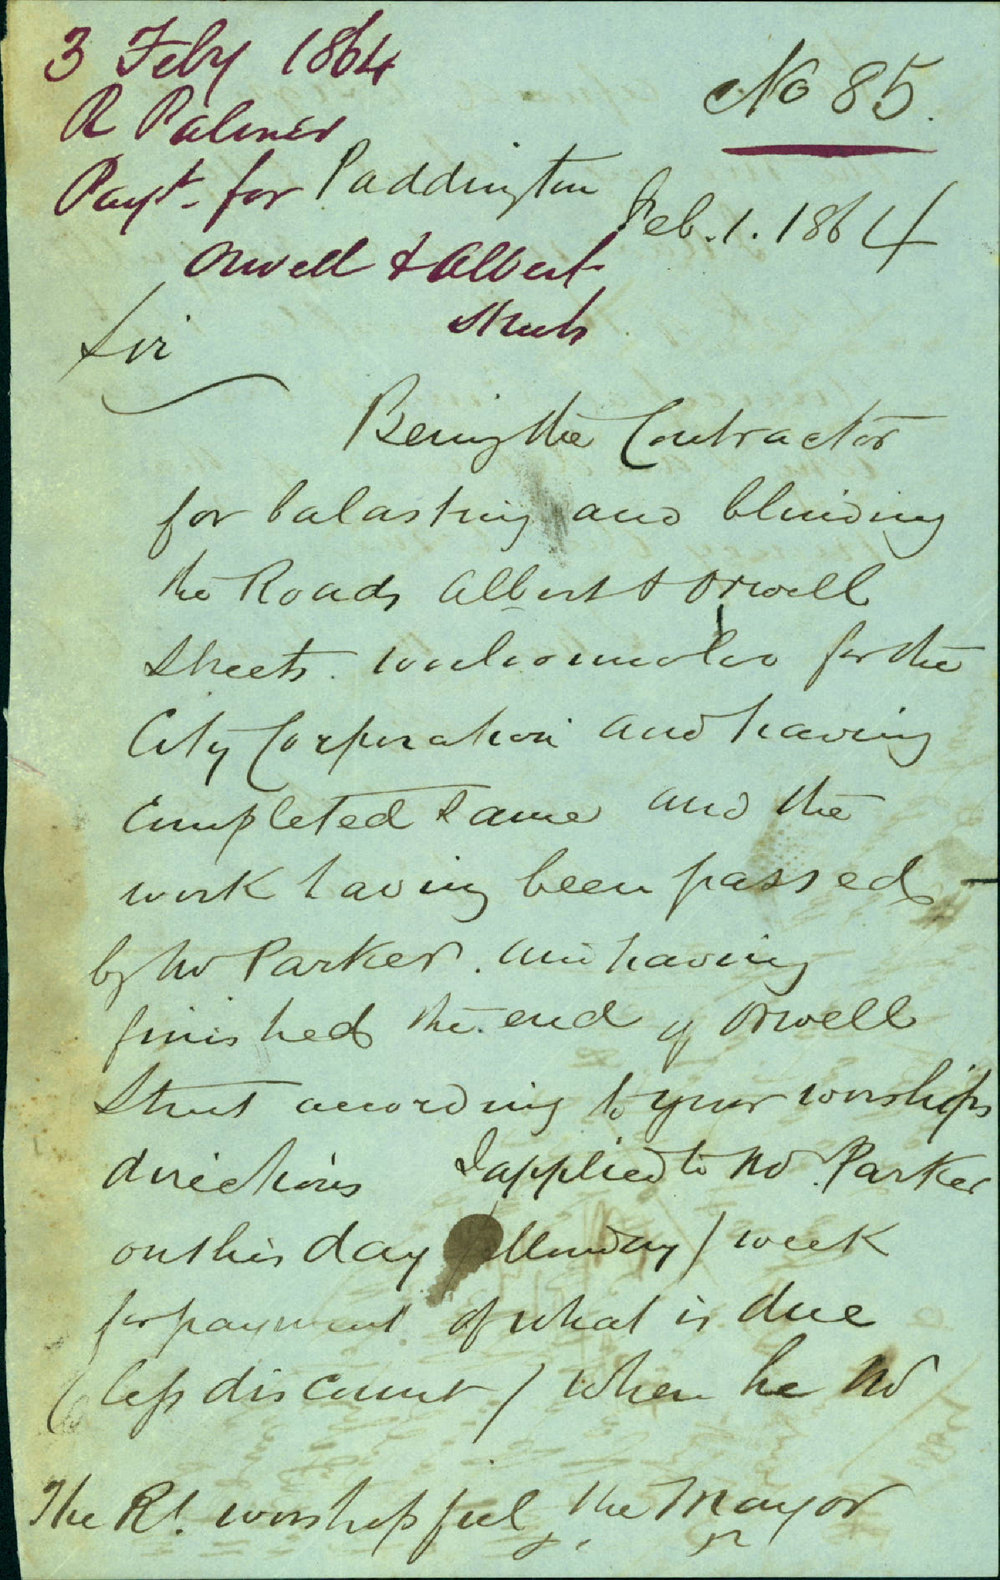 3 Feby 1864
R Palmer
Payt. for
Orwell & Albert
Streets
No 85.
Paddington
Feb. 1. 1864
Sir
Being the Contractor
for balasting and blinding
the Roads Albert & Orwell
Streets. Woolloomooloo for the
City Corporation and having
completed same and the
work having been passed
by Mr Parker. and having
finished the end of Orwell
Street according to your worships
directions I applied to Mr. Parker
on this day Monday / week
for payment of what is due
(less discount) when he Mr
The Rt. worshipful, the Mayor